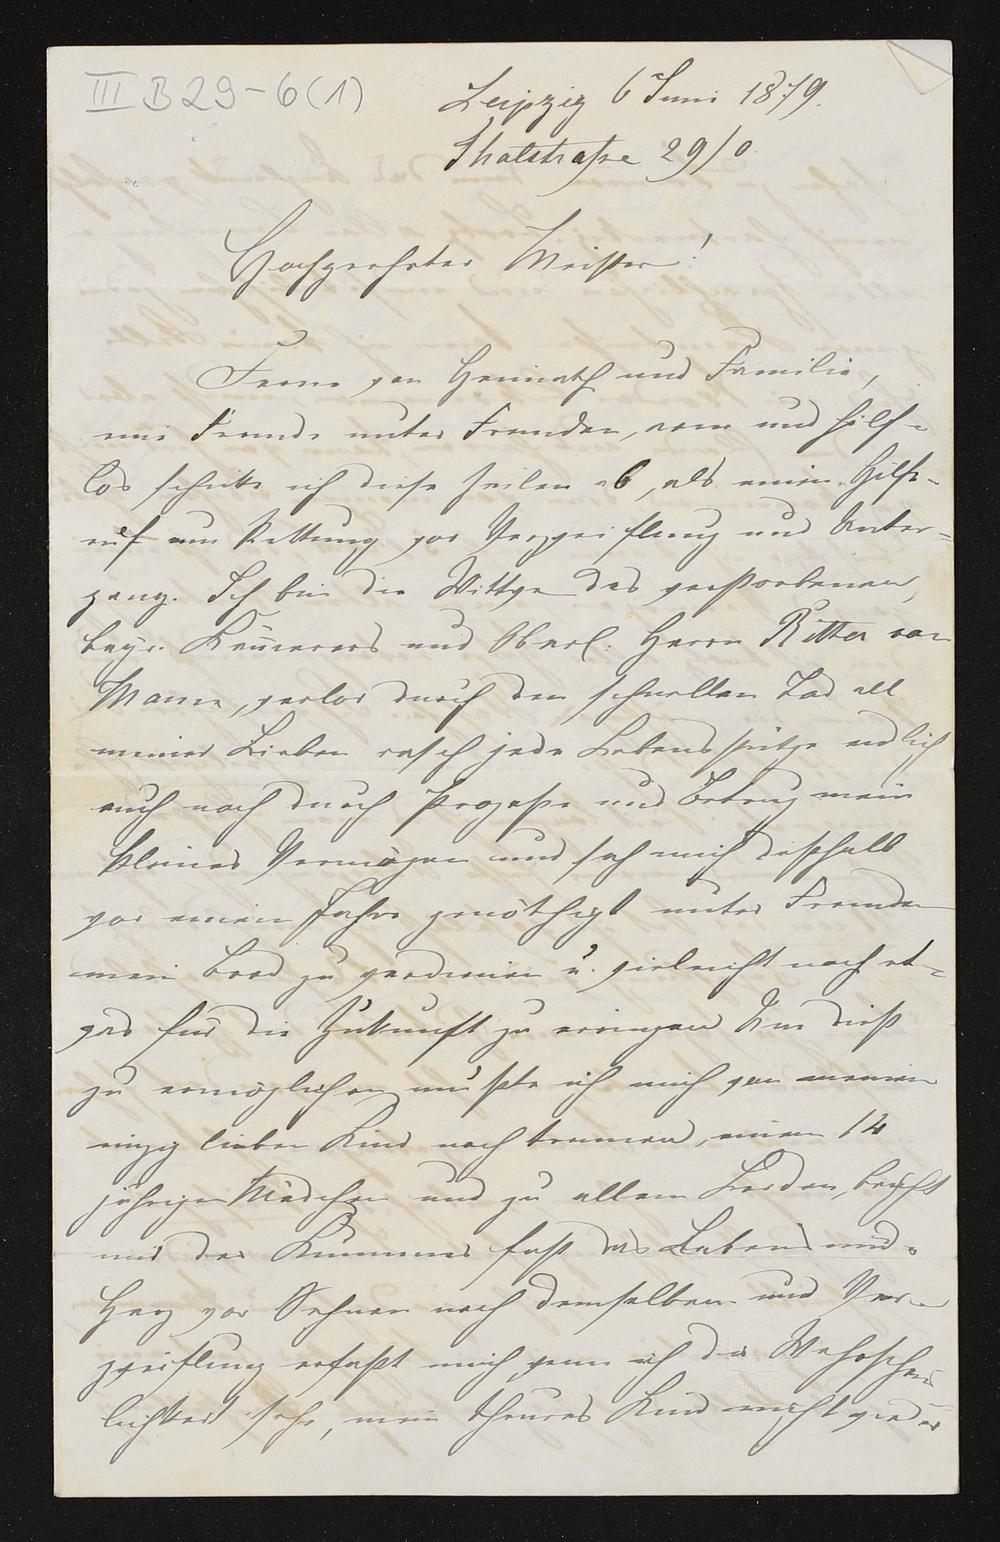 III B 29-6(1)
Leipzig 6 Juni 1879.
Thalstraße 29/0
Hochgeehrter Meister!
Ferne von Heimath und Familie,
eine Fremde unter Fremden, arm und hilf-
los schicke ich diese Zeilen ab, als einen Hilfe-
ruf um Rettung vor Verzweiflung und Unter-
gang. Ich bin die Wittwe des verstorbenen,
bayr. Kämerers und Oberl. Herrn Ritter von
Mann, verlor durch den schnellen Tod all
meiner Lieben rasch jede Lebensstütze endlich
auch noch durch Prozeße und Betrug mein
kleines Vermögen und sah mich deßhalb
vor einem Jahre genöthigt unter Fremden
mein Brod zu verdienen u. vielleicht noch et-
was für die Zukunft zu erringen Um dieß
zu ermöglichen mußte ich mich von meinem
einzig lieben Kind noch trennen, einem 14
jährigen Mädchen und zu allem Leiden, bricht
mir der Kummer fast das Lebens und
Herz vor Sehnen nach demselben und Ver-
zweiflung erfaßt mich wenn ich die Wahrschein
lichkeit sehe, mein theures Kind nicht wieder